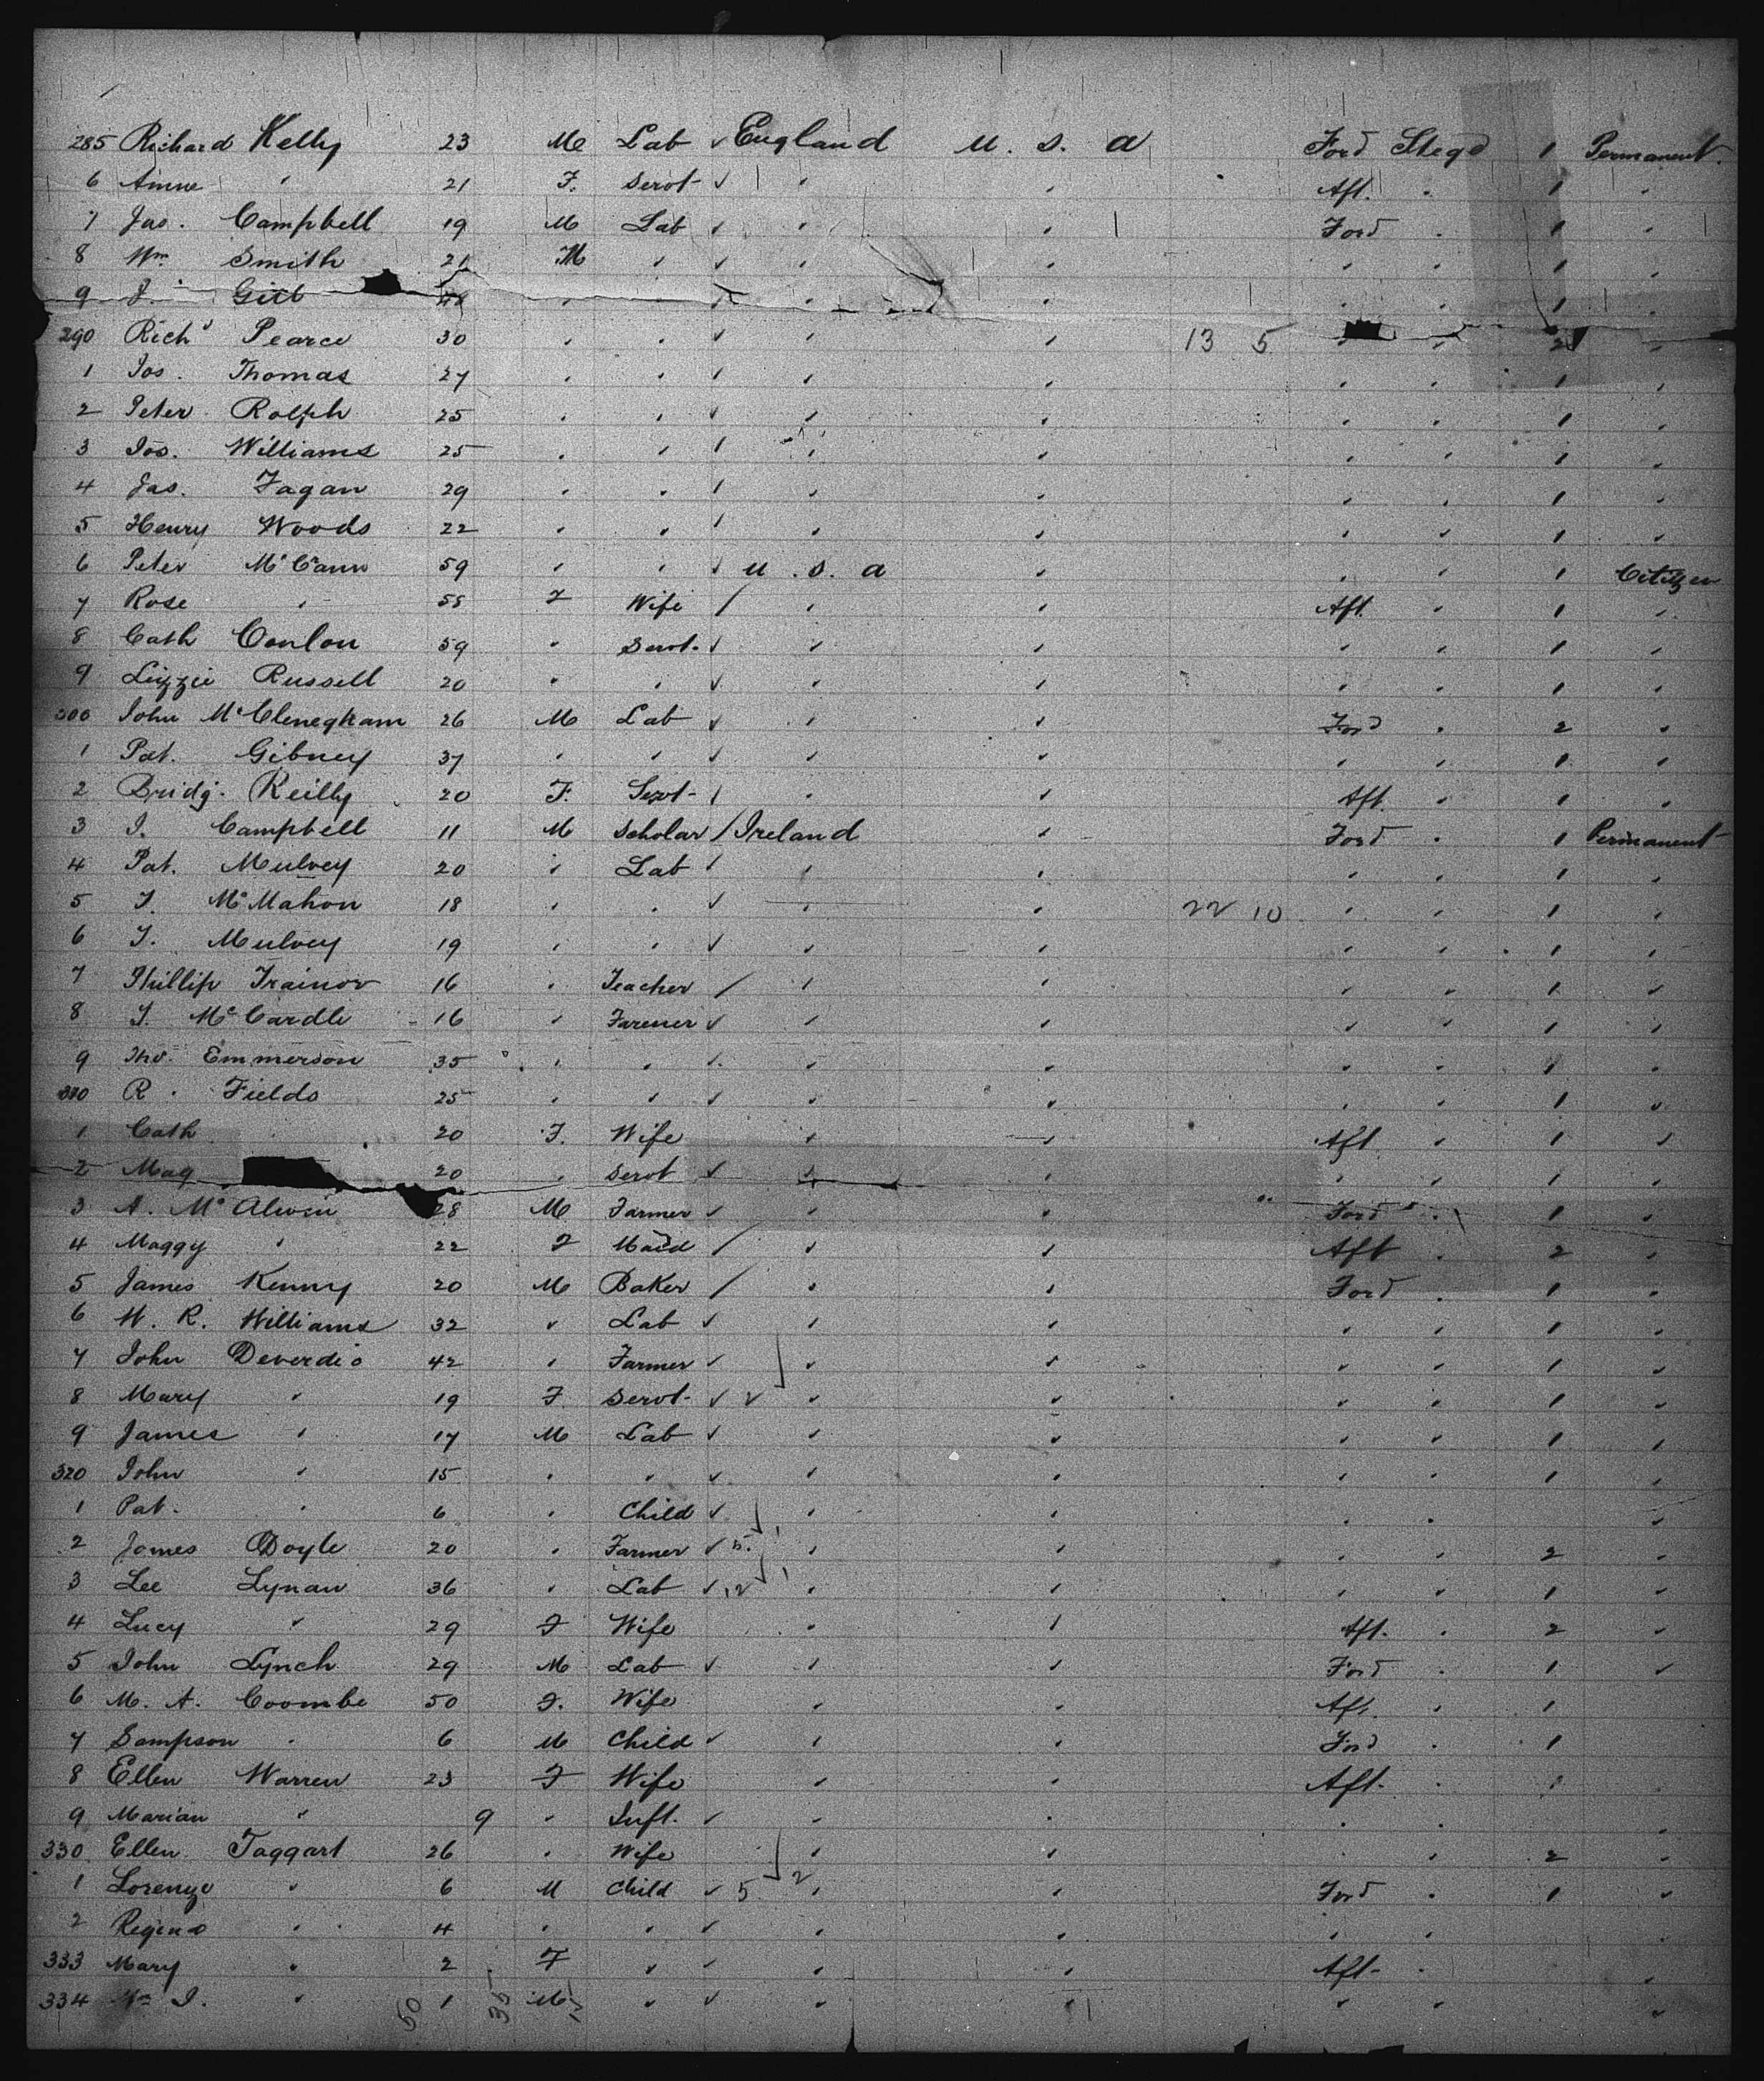 285 Richard Kelly 23 M Lab ✓ England U. S. A Ford Stege 1 Permanent.
6 Annie " 21 F. Servt ✓ " " Aft. " 1 "
7 Jas. Campbell 19 M Lab ✓ " " Ford " 1 "
8 Wm Smith 21 M " ✓ " " " " 1 "
9 J. " ✓ " " " " 1 "
290 Richd Pearce 30 " " ✓ " " 13 5 " " 2 "
1 Jos. Thomas 27 " " ✓ " " " " 1 "
2 Peter Rolph 25 " " ✓ " " " " 1 "
3 Jos. Williams 25 " " / " " " " 1 "
4 Jas. Fagan 29 " " / " " " " 1 "
5 Henry Woods 22 " " / " " " " 1 "
6 Peter McCann 59 " " ✓ U. S. A " " " 1 Citizen
7 Rose " 58 F Wife / " " Aft. " 1 "
8 Cath Conlon 59 " Servt. ✓ " " " " 1 "
9 Lizzie Russell 20 " " ✓ " " " " 1 "
300 John McClenegham 26 M Lab ✓ " " Ford " 2 "
1 Pat. Gibney 37 " " ✓ " " " " 1 "
2 Bridg. Reilly 20 F. Servt / " " Aft. " 1 "
3 J. Campbell 11 M Scholar / Ireland " Ford " 1 Permanent
4 Pat. Mulvey 20 " Lab / " " " " 1 "
5 J. McMahon 18 " " ✓ " " 22 10 " " 1 "
6 J. Mulvey 19 " " ✓ " " " " 1 "
7 Phillip Trainor 16 " Teacher / " " " " 1 "
8 J. McCardle 16 " Farmer ✓ " " " " 1 "
9 Tho. Emmerson 35 " " ✓ " " " " 1 "
310 R. Fields 25 " " ✓ " " " " 1 "
1 Cath 20 F. Wife " " Aft. " 1 "
2 Mag 20 " Servt ✓ " " " " 1 "
3 A. 28 M Farmer ✓ " " Ford " 1 "
4 Maggy " 22 F Maid / " " Aft " 2 "
5 James Kenny 20 M Baker / " " Ford " 1 "
6 W. R. Williams 32 " Lab ✓ " " " " 1 "
7 John Deverdio 42 " Farmer ✓ " " " " 1 "
8 Mary " 19 F. Servt ✓ " " " " 1 "
9 James " 17 M Lab ✓ " " " " 1 "
320 John " 15 " " ✓ " " " " 1 "
1 Pat. " 6 " Child ✓ " " " " "
2 James Doyle 20 " Farmer ✓ 5. " " " " 2 "
3 Lee Lynan 36 " Lab ✓ 12 " " " " 1 "
4 Lucy " 29 F Wife " " Aft. " 2 "
5 John Lynch 29 M Lab ✓ " " Ford " 1 "
6 M. A. Coombe 50 F. Wife " " Aft. " 1
7 Sampson " 6 M Child ✓ " " Ford " 1
8 Ellen Warren 23 F Wife " " Aft. " 1 "
9 Marian " 9 " Inft. ✓ " " " " "
330 Ellen Taggart 26 " Wife " " " " 2 "
1 Lorenzo " 6 M Child ✓ 5 2 " " Ford " 1 "
2 Regina " 4 " " ✓ " " " " "
333 Mary " 2 F " ✓ " " Aft. " "
334 Wm J. " 1 M " ✓ " " " " "
50 35